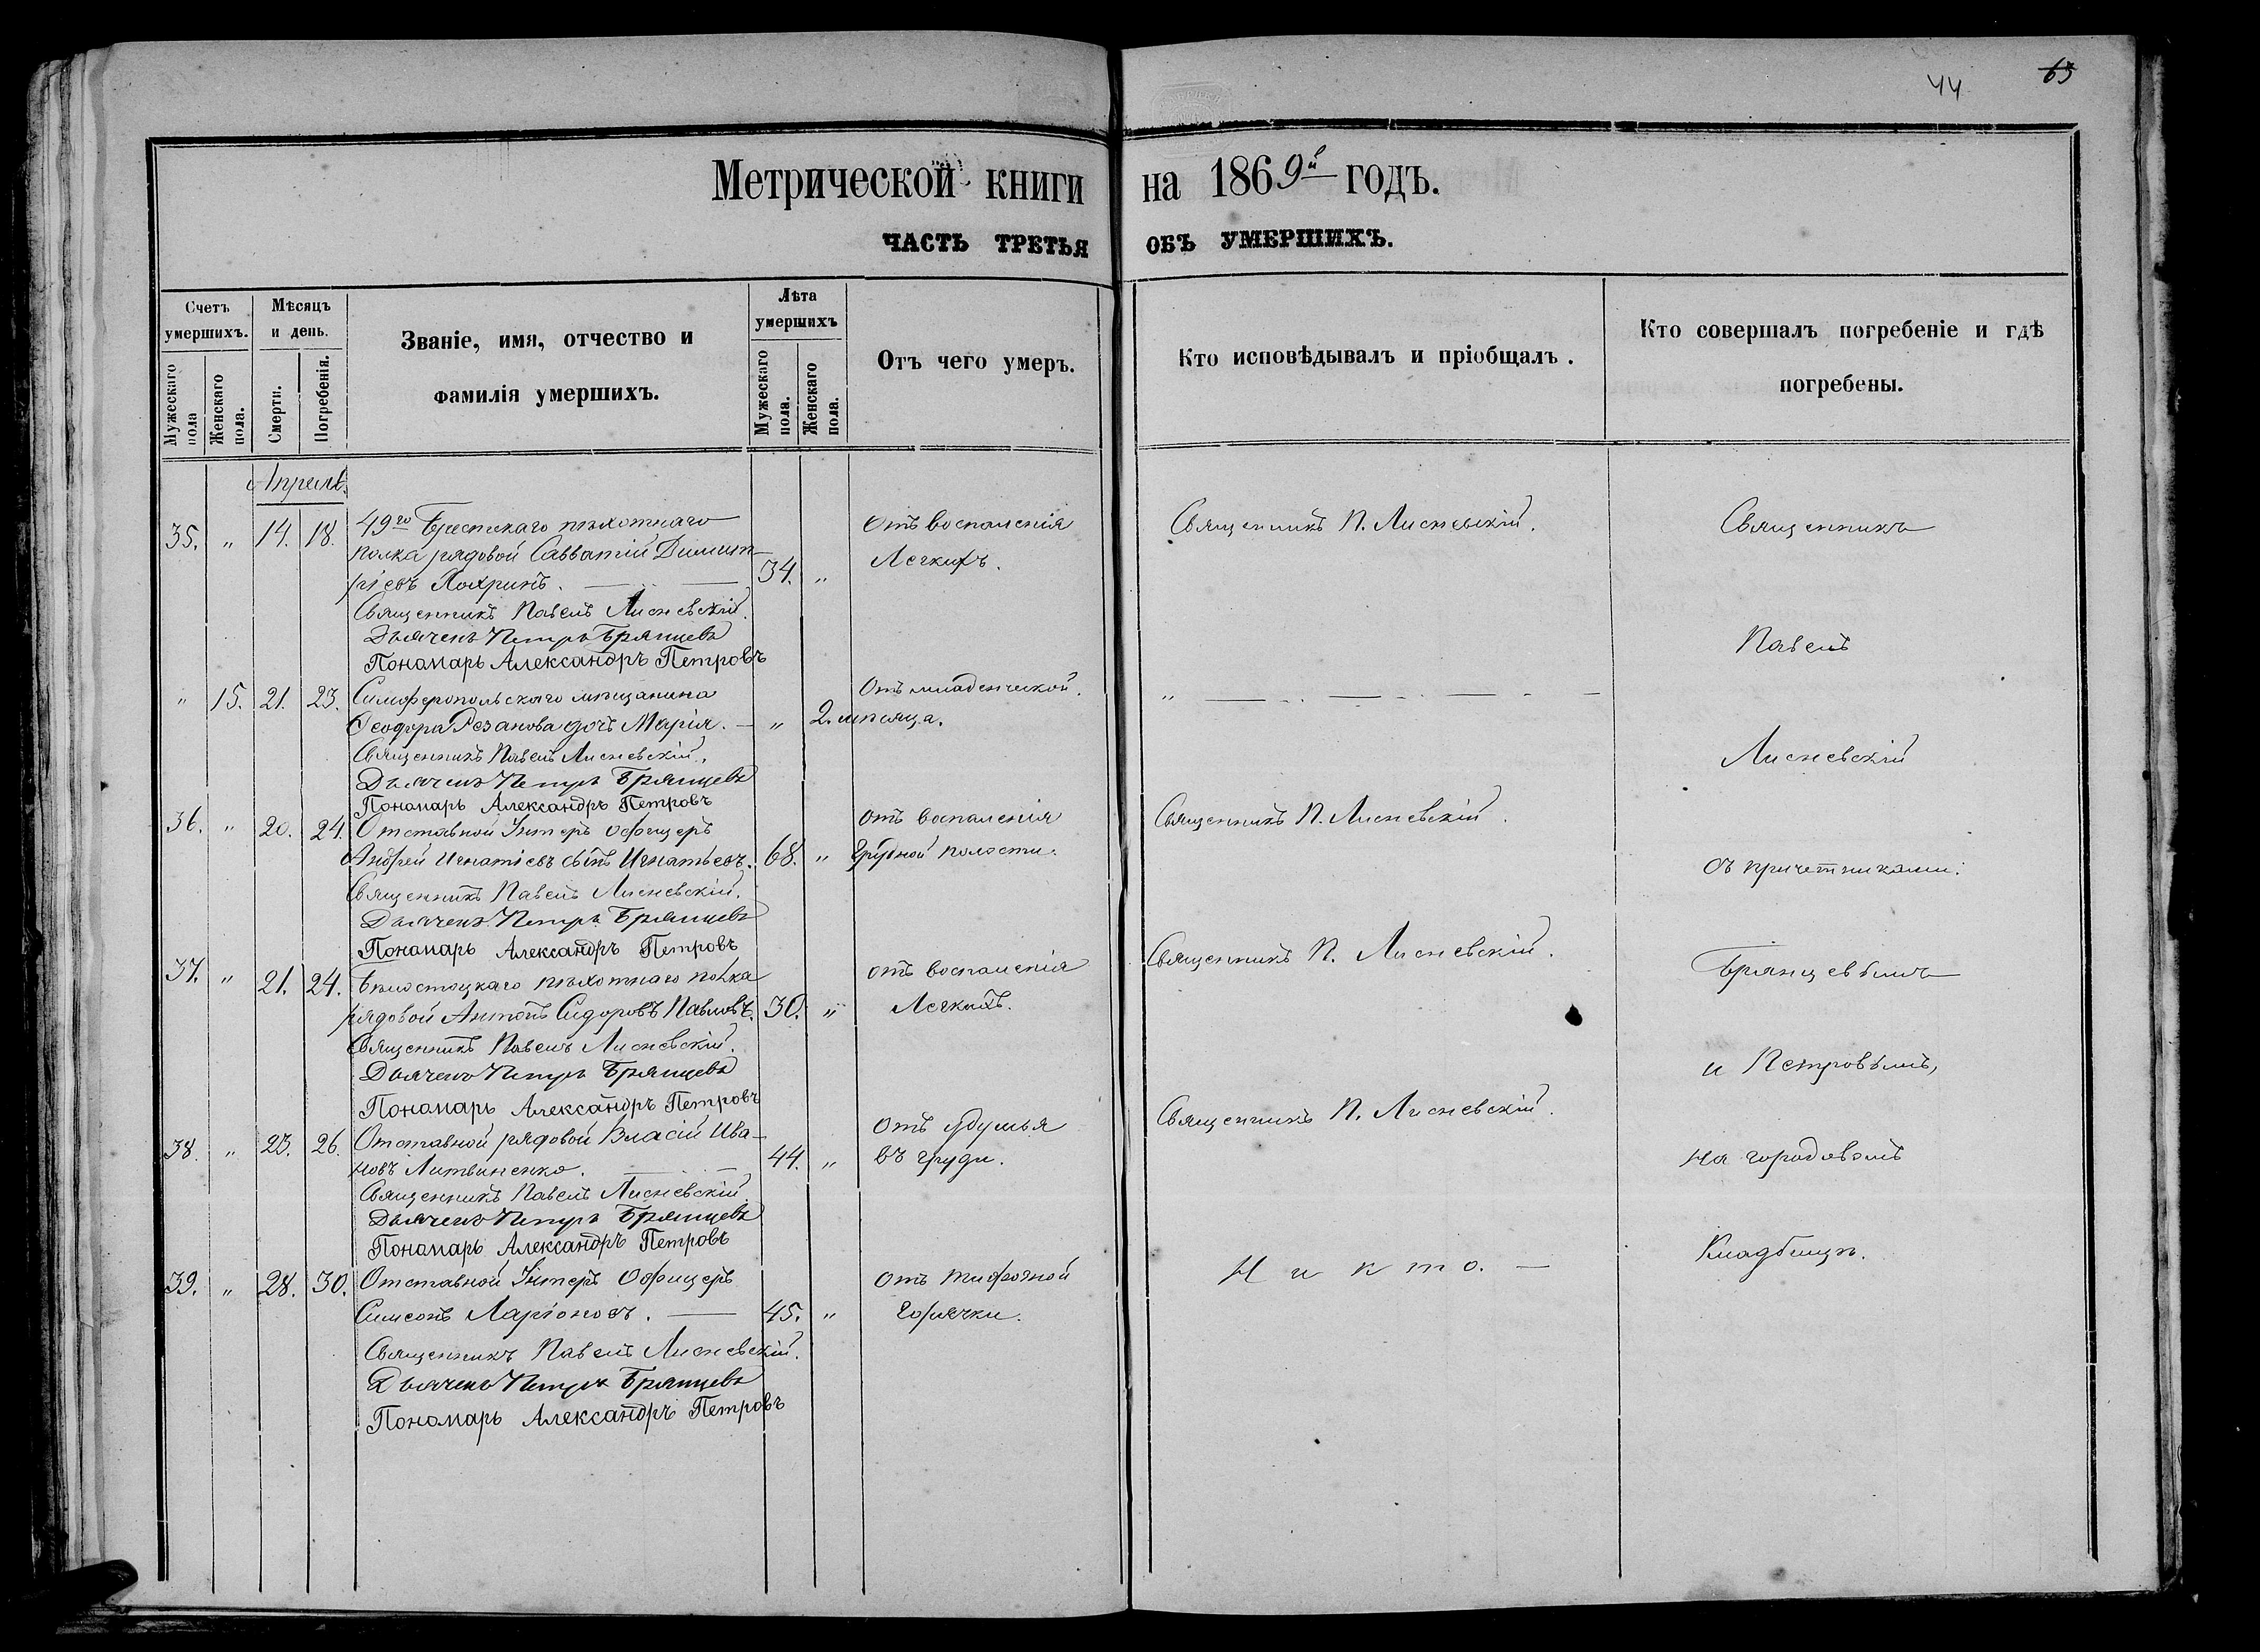 44 63
Метрической книги на 1869й годъ.
ЧАСТЬ ТРЕТЬЯ ОБЪ УМЕРШИХЪ.
Счетъ умершихъ.
Мужескаго пола
Женскаго пола.
Мѣсяцъ и день.
Смерти.
Погребенія.
Званіе, имя, отчество и
фамилія умершихъ.
Лѣта умершихъ
Мужескаго пола.
Женскаго пола.
Отъ чего умеръ.
Кто исповѣдывалъ и пріобщалъ.
Кто совершалъ погребеніе и гдѣ
погребены.
Апрель.
35. " 14. 18. 49го Брестскаго пѣхотнаго Отъ воспаленія Священникъ П. Лисневскій. Священникъ
полка рядовой Савватій Димит-
ріевъ Лохринъ. 34. " Легкихъ.
Священникъ Павелъ Лисневскій.
Дьячекъ Петръ Брянцевъ Павелъ
Пономарь Александръ Петровъ
" 15. 21. 23. Симферопольскаго мѣщанина Отъ младенческой. "
Ѳеодора Резанова дочь Марія. " 2. мѣсяца.
Священникъ Павелъ Лисневскій. Лисневскій
Дьячекъ Петръ Брянцевъ
Пономарь Александръ Петровъ
36. " 20. 24. Отставной Унтеръ офицеръ Отъ воспаленія Священникъ П. Лисневскій.
Андрей Игнатіевъ сынъ Игнатьевъ. 68. " Грудной полости. съ причетниками:
Священникъ Павелъ Лисневскій.
Дьячекъ Петръ Брянцевъ
Пономарь Александръ Петровъ
37. " 21. 24. Бѣлостоцкаго пѣхотнаго полка отъ воспаленія Священникъ П. Лисневскій. Брянцевымъ
рядовой Антонъ Сидоровъ Павловъ. 30. " Легкихъ.
Священникъ Павелъ Лисневскій.
Дьячекъ Петръ Брянцевъ и Петровымъ,
Пономарь Александръ Петровъ
38. " 23. 26. Отставной рядовой Власій Ива- Отъ удушья Священникъ П. Лисневскій.
новъ Литвиненко. 44. " въ груди. на городовомъ
Священникъ Павелъ Лисневскій.
Дьячекъ Петръ Брянцевъ
Пономарь Александръ Петровъ Кладбищѣ.
39. " 28. 30. Отставной Унтеръ Офицеръ Отъ тифозной Никто.
Симеонъ Ларіоновъ. 45. " Горячки.
Священникъ Павелъ Лисневскій.
Дьячекъ Петръ Брянцевъ
Пономарь Александръ Петровъ